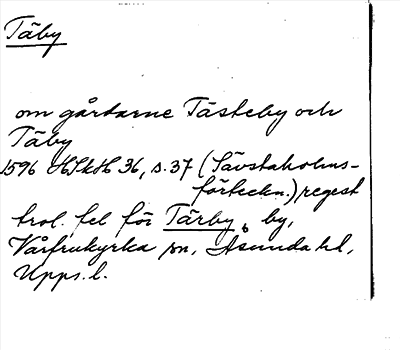 Täby
om gårdarne Tästeby och
Täby
1596 HSkH 36, s. 37 (Sävstaholms-
förteckn.) regest
trol. fel för Tärby, by,
Vårfrukyrka sn, Åsunda hd,
Upps. l.